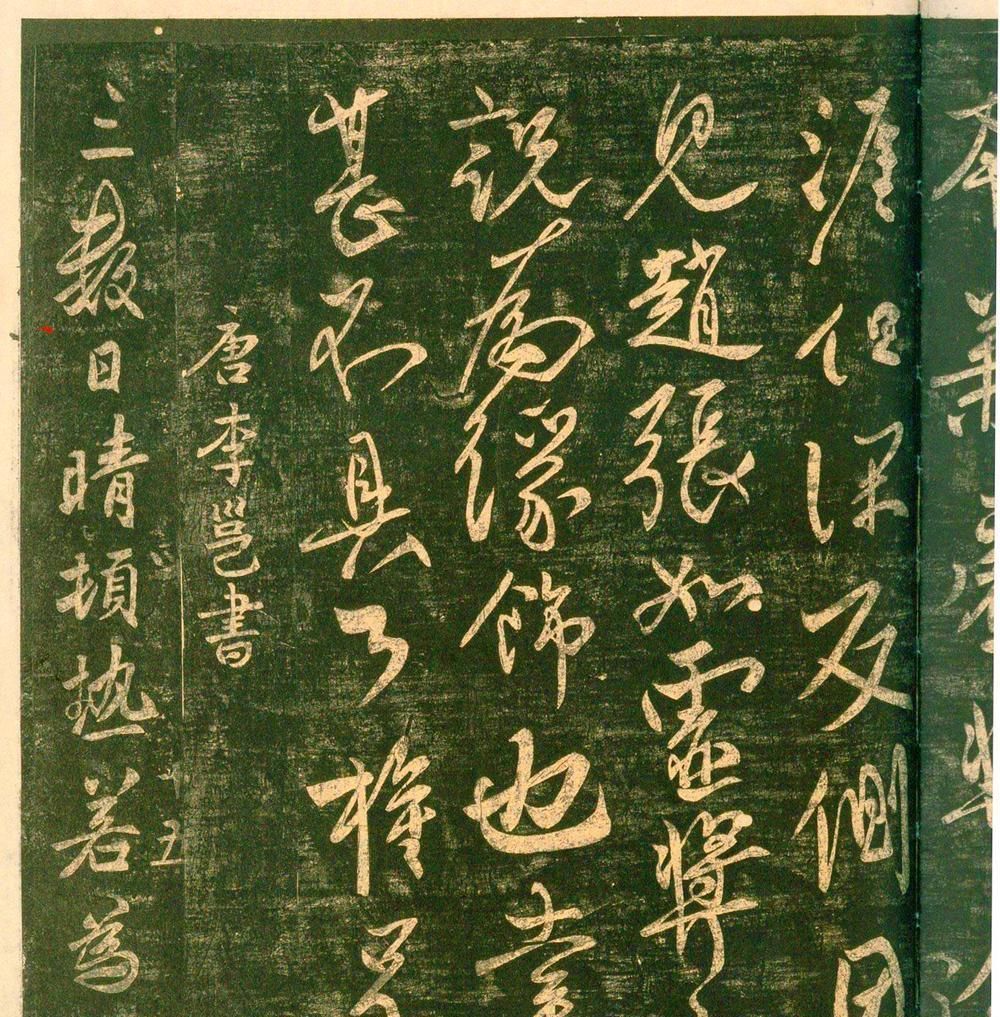 涯但深反側因
見趙張如靈將
說為緣飾也幸
甚不具了權兄
唐李邕書
三數日晴頓熱若為
五